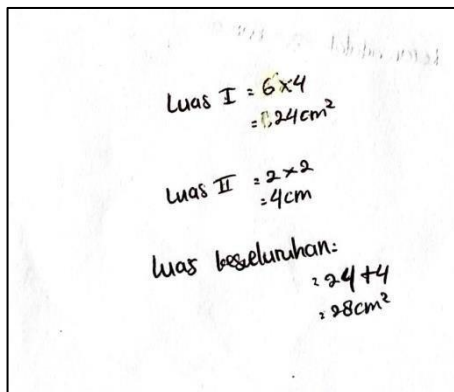 Luas I = 6x4
= 24cm²
Luas II = 2x2
= 4cm
Luas keseluruhan:
= 24+4
= 28cm²